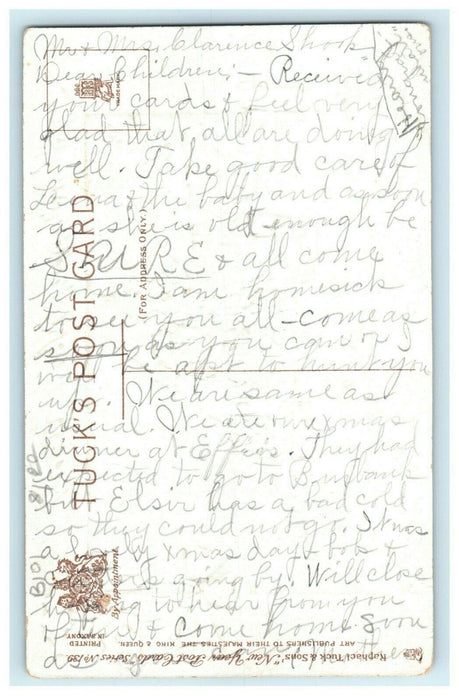 Mr & Mrs. Clarence Shook
Dear Children; – Received
your cards & feel very
glad that all are doing
well. Take good care of
Leona & the baby and as soon
as she is old enough be
SURE & all come
home. I am homesick
to see you all – come as
soon as you can or I
will be apt to hunt you
up. We are same as
usual. We ate our xmas
dinner at Effie's. They had
expected to go to Bourbank
but Elsie has a bad cold
so they could not go. It was
a lovely xmas day bob &
going by. Will close
hoping to hear from you
often & Come home Soon
TRADE MARK
TUCK'S POST CARD
(FOR ADDRESS ONLY.)
By Appointment.
Raphael Tuck & Sons' "New Year" Post Cards Series No 139
ART PUBLISHERS TO THEIR MAJESTIES THE KING & QUEEN.
PRINTED
IN SAXONY